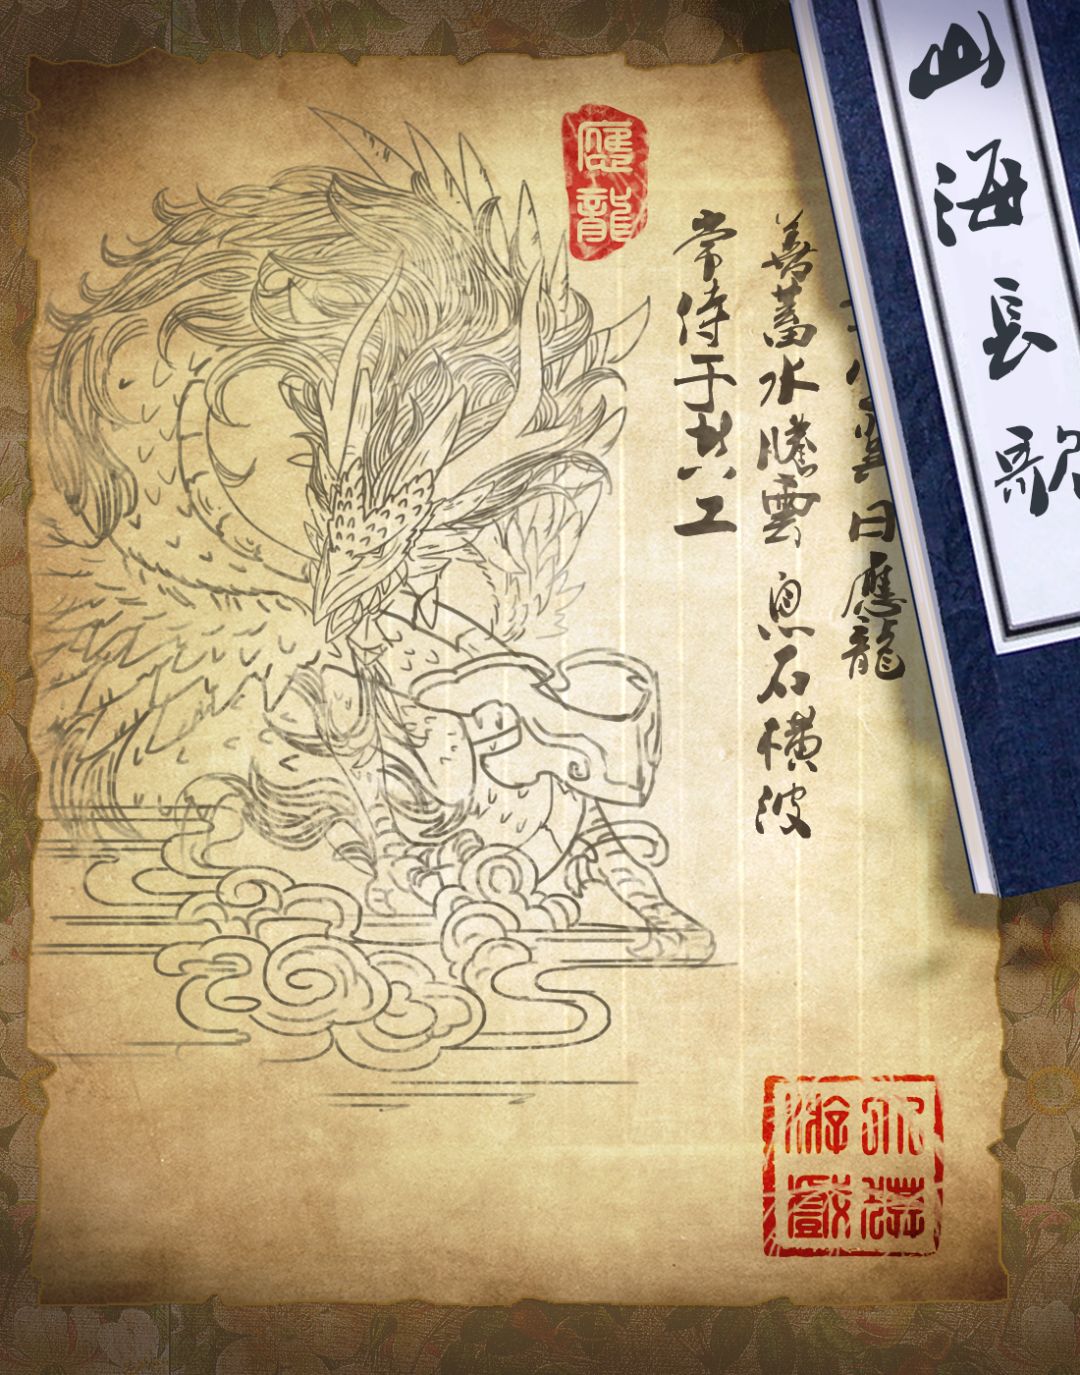 山海長歌
翼曰應龍
善蓄水騰雲 息石橫波
常侍于共工
應龍
游戲